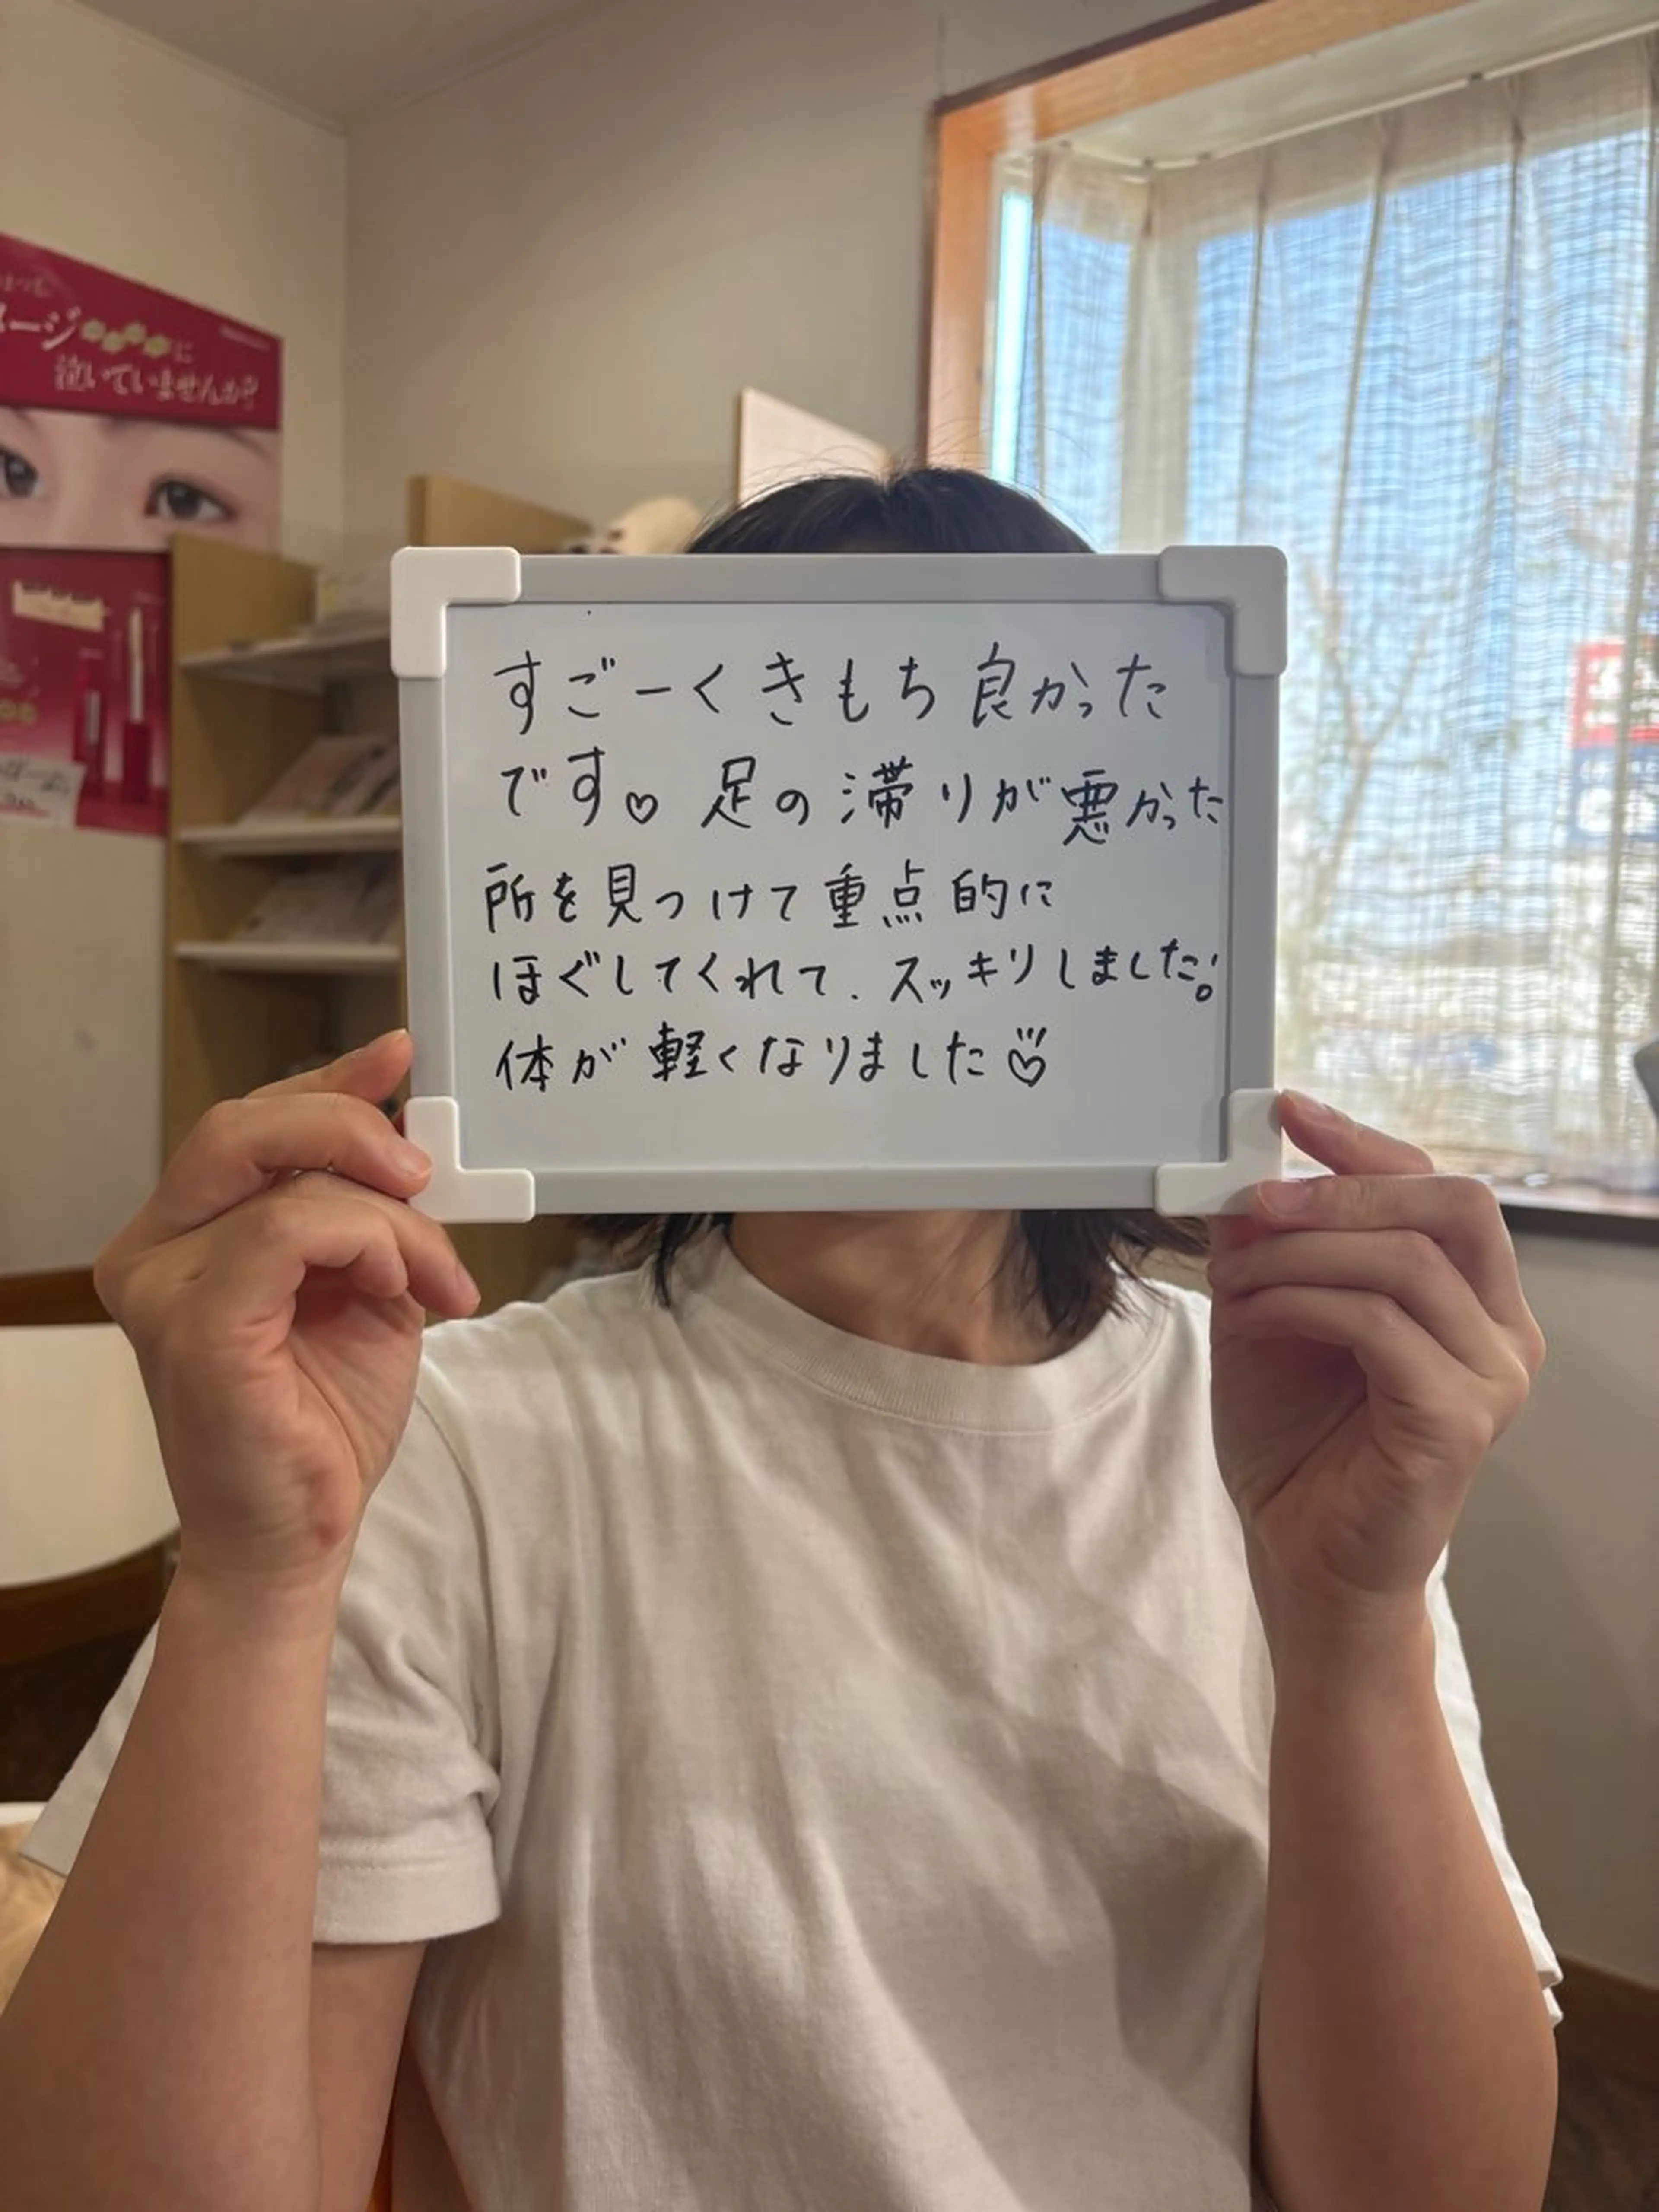 すごーくきもち良かった
です♡ 足の滞りが悪かった
所を見つけて重点的に
ほぐしてくれて、スッキリしました!
体が軽くなりました♡
ージ
に
泣いていませんか?